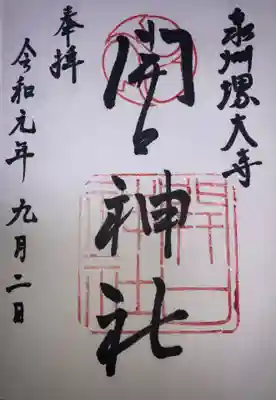 泉州堺大寺
開口神社
奉拝
令和元年九月二日